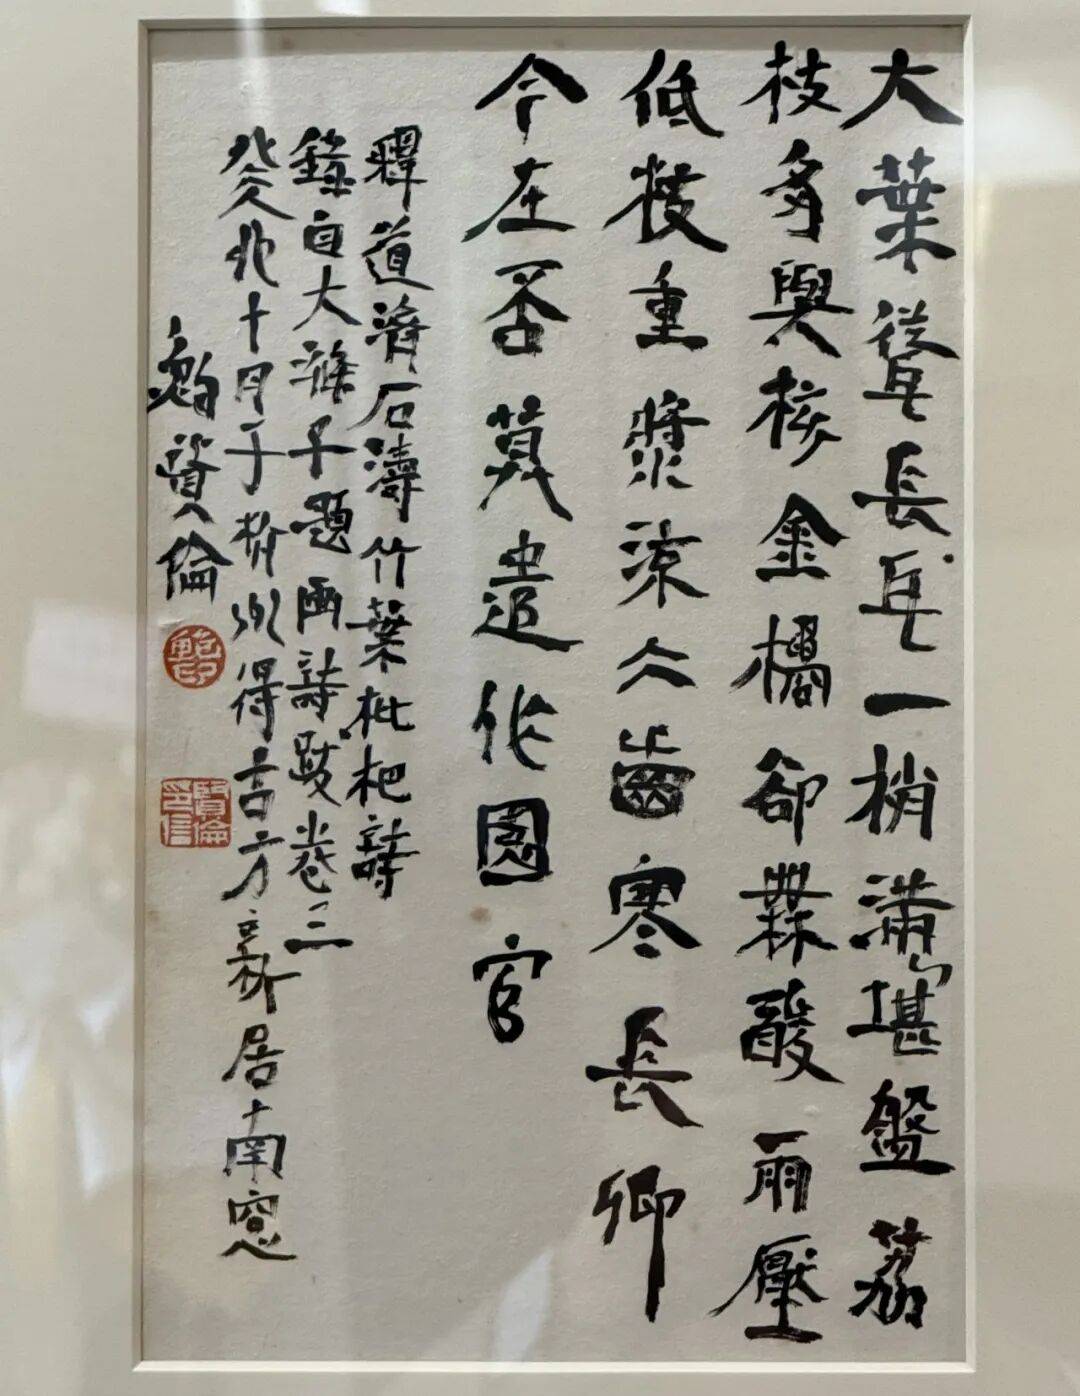 大葉聳長耳一梢滿堪盤荔
枝多與核金橘卻無酸雨壓
低枝重漿涼仌齒寒長卿
今在否莫遣作園官
釋道濟石濤竹葉枇杷詩
錄自大滌子題画詩跋卷三
癸卯十月于杭州得方新居南窻
鮑賢倫
鮑印
賢倫印信